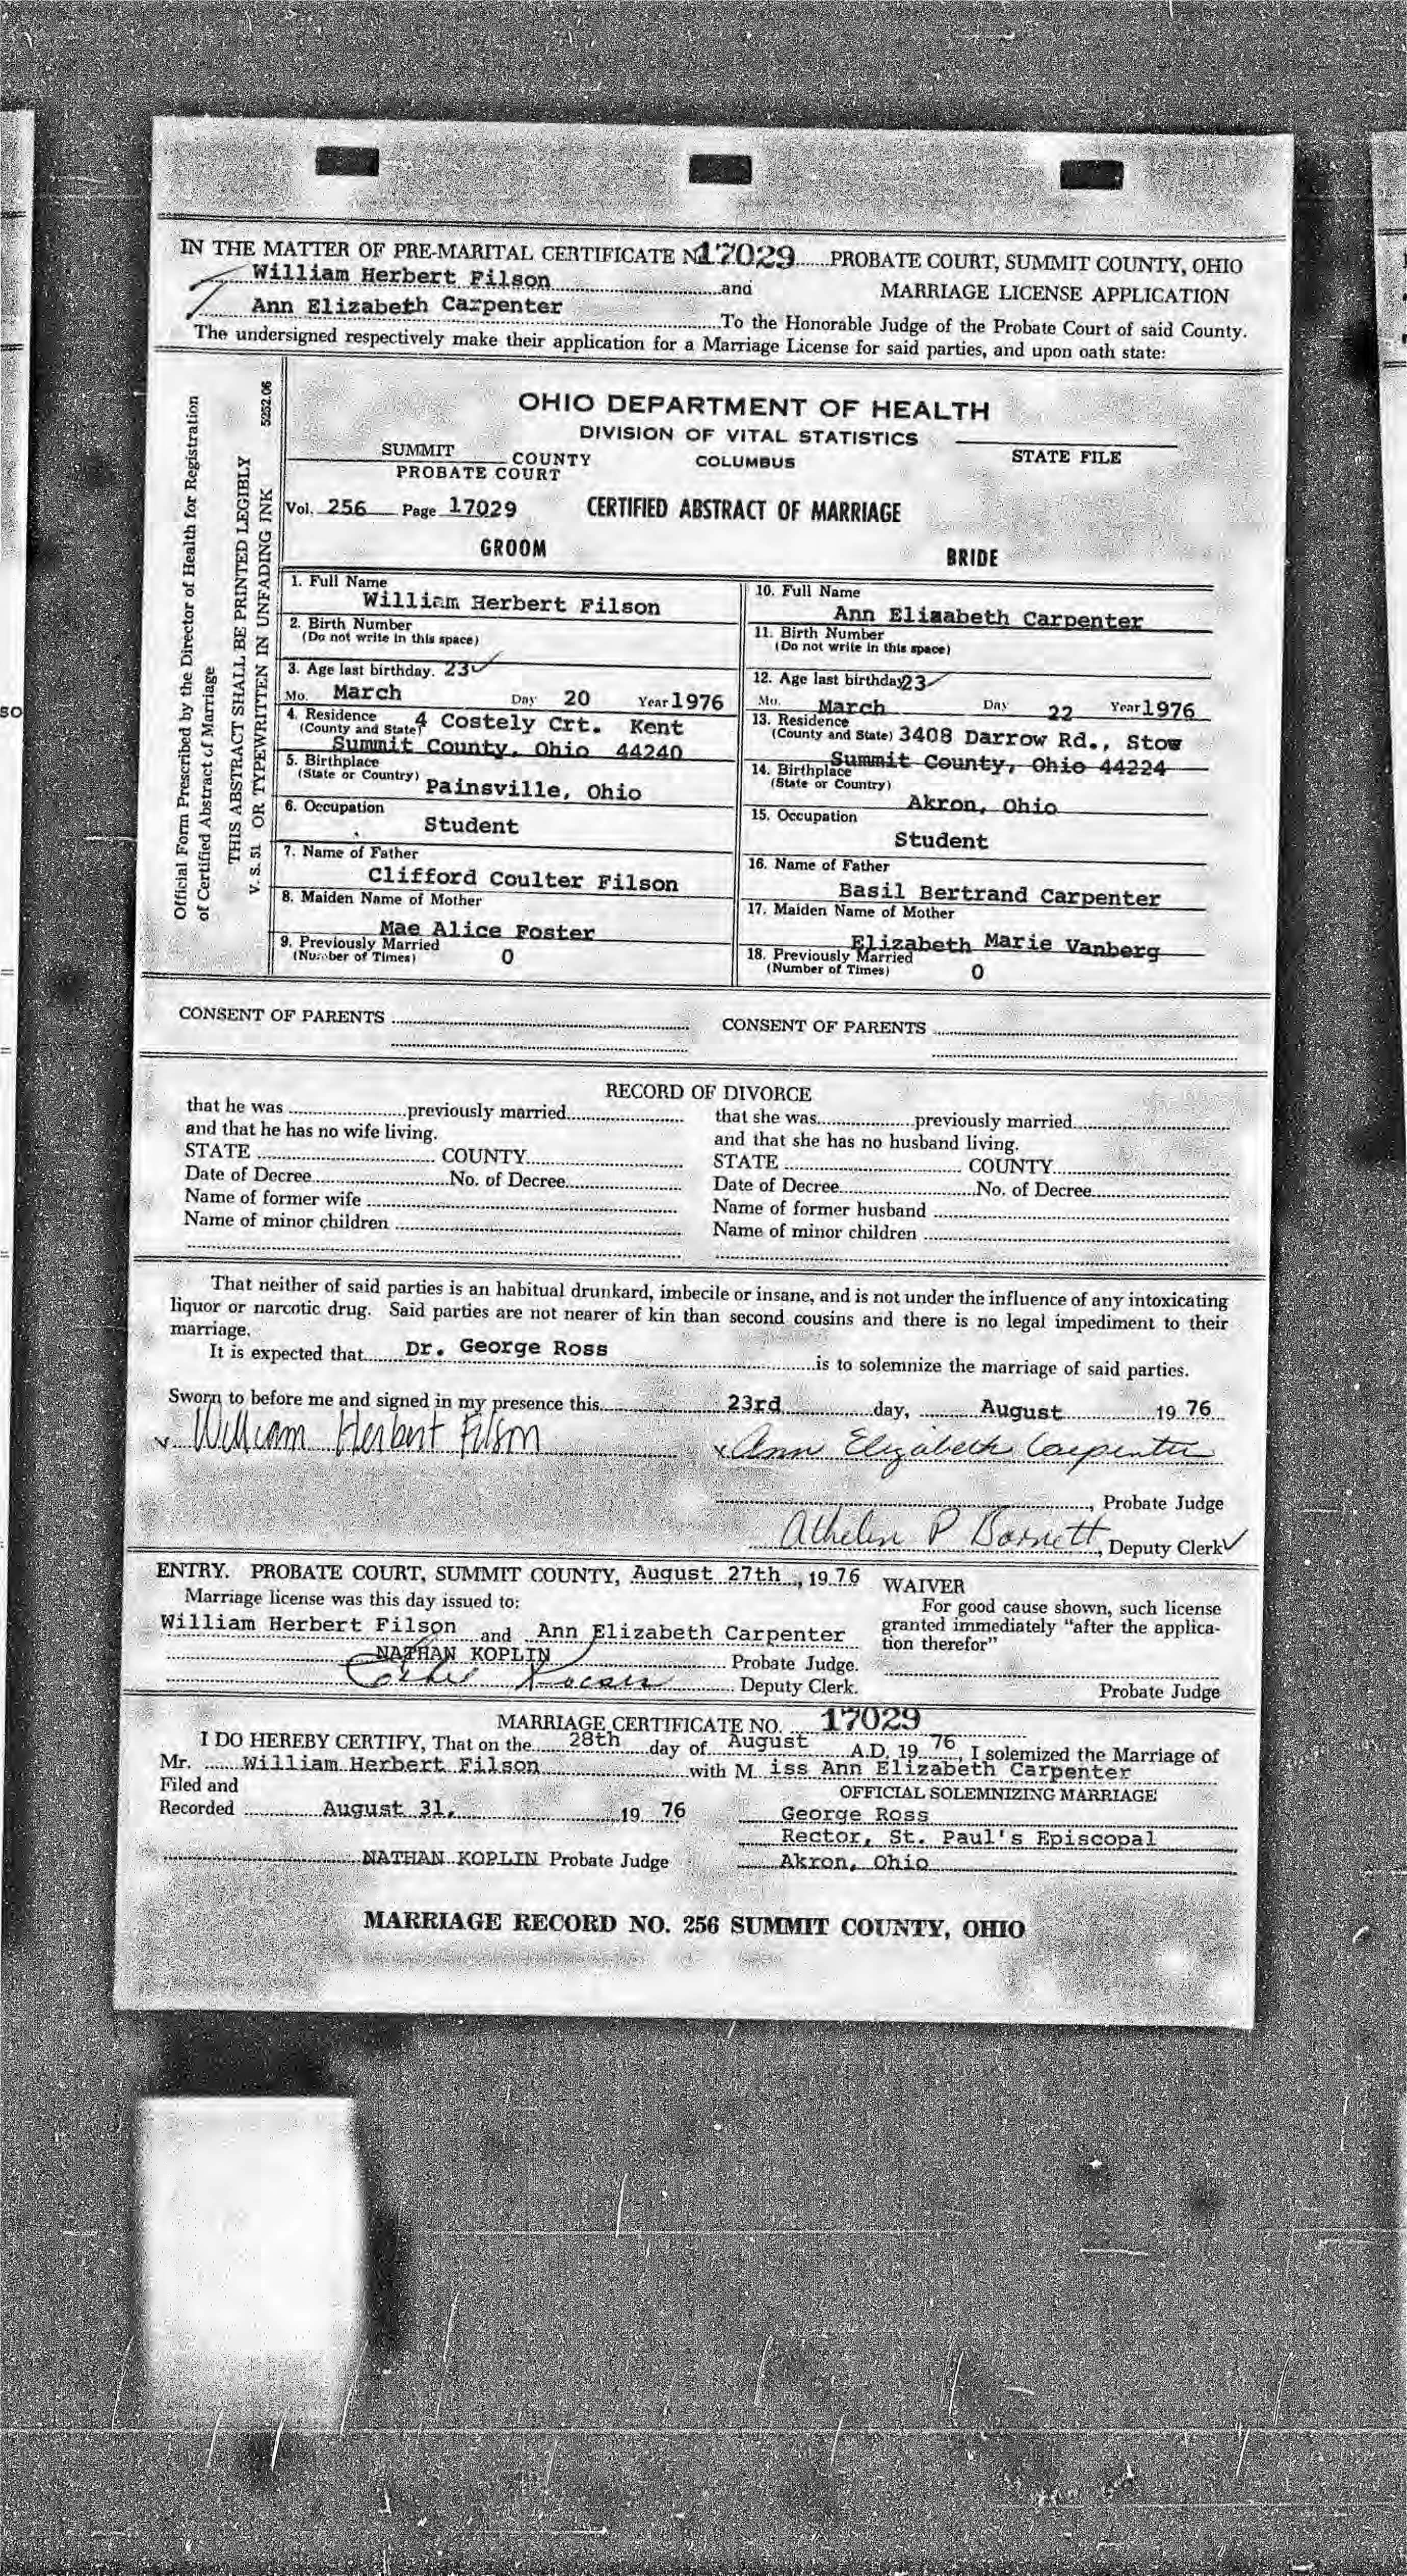 IN THE MATTER OF PRE-MARITAL CERTIFICATE N 17029 PROBATE COURT, SUMMIT COUNTY, OHIO
William Herbert Filson and MARRIAGE LICENSE APPLICATION
Ann Elizabeth Carpenter To the Honorable Judge of the Probate Court of said County.
The undersigned respectively make their application for a Marriage License for said parties, and upon oath state:
Official Form Prescribed by the Director of Health for Registration
of Certified Abstract of Marriage
THIS ABSTRACT SHALL BE PRINTED LEGIBLY
V. S. 51 OR TYPEWRITTEN IN UNFADING INK 5252.06
OHIO DEPARTMENT OF HEALTH
DIVISION OF VITAL STATISTICS
SUMMIT COUNTY COLUMBUS STATE FILE
PROBATE COURT
Vol. 256 Page 17029 CERTIFIED ABSTRACT OF MARRIAGE
GROOM
1. Full Name
William Herbert Filson
2. Birth Number
(Do not write in this space)
3. Age last birthday. 23
Mo. March Day 20 Year 1976
4. Residence 4 Costely Crt. Kent
(County and State) Summit County, Ohio 44240
5. Birthplace
(State or Country) Painsville, Ohio
6. Occupation
Student
7. Name of Father
Clifford Coulter Filson
8. Maiden Name of Mother
Mae Alice Foster
9. Previously Married
(Number of Times) 0
BRIDE
10. Full Name
Ann Elizabeth Carpenter
11. Birth Number
(Do not write in this space)
12. Age last birthday 23
Mo. March Day 22 Year 1976
13. Residence
(County and State) 3408 Darrow Rd., Stow
Summit County, Ohio 44224
14. Birthplace
(State or Country) Akron, Ohio
15. Occupation
Student
16. Name of Father
Basil Bertrand Carpenter
17. Maiden Name of Mother
Elizabeth Marie Vanberg
18. Previously Married
(Number of Times) 0
CONSENT OF PARENTS CONSENT OF PARENTS
RECORD OF DIVORCE
that he was previously married
and that he has no wife living.
STATE COUNTY
Date of Decree No. of Decree
Name of former wife
Name of minor children
that she was previously married
and that she has no husband living.
STATE COUNTY
Date of Decree No. of Decree
Name of former husband
Name of minor children
That neither of said parties is an habitual drunkard, imbecile or insane, and is not under the influence of any intoxicating
liquor or narcotic drug. Said parties are not nearer of kin than second cousins and there is no legal impediment to their
marriage.
It is expected that Dr. George Ross is to solemnize the marriage of said parties.
Sworn to before me and signed in my presence this 23rd day, August 19 76
x William Herbert Filson x Ann Elizabeth Carpenter
, Probate Judge
Athelen P Barnett, Deputy Clerk
ENTRY. PROBATE COURT, SUMMIT COUNTY, August 27th, 19 76
Marriage license was this day issued to:
William Herbert Filson and Ann Elizabeth Carpenter
NATHAN KOPLIN Probate Judge.
Deputy Clerk.
WAIVER
For good cause shown, such license
granted immediately "after the applica-
tion therefor"
Probate Judge
MARRIAGE CERTIFICATE NO. 17029
I DO HEREBY CERTIFY, That on the 28th day of August A.D. 19 76, I solemized the Marriage of
Mr. William Herbert Filson with M iss Ann Elizabeth Carpenter
Filed and
Recorded August 31, 19 76
NATHAN KOPLIN Probate Judge
OFFICIAL SOLEMNIZING MARRIAGE
George Ross
Rector, St. Paul's Episcopal
Akron, Ohio
MARRIAGE RECORD NO. 256 SUMMIT COUNTY, OHIO